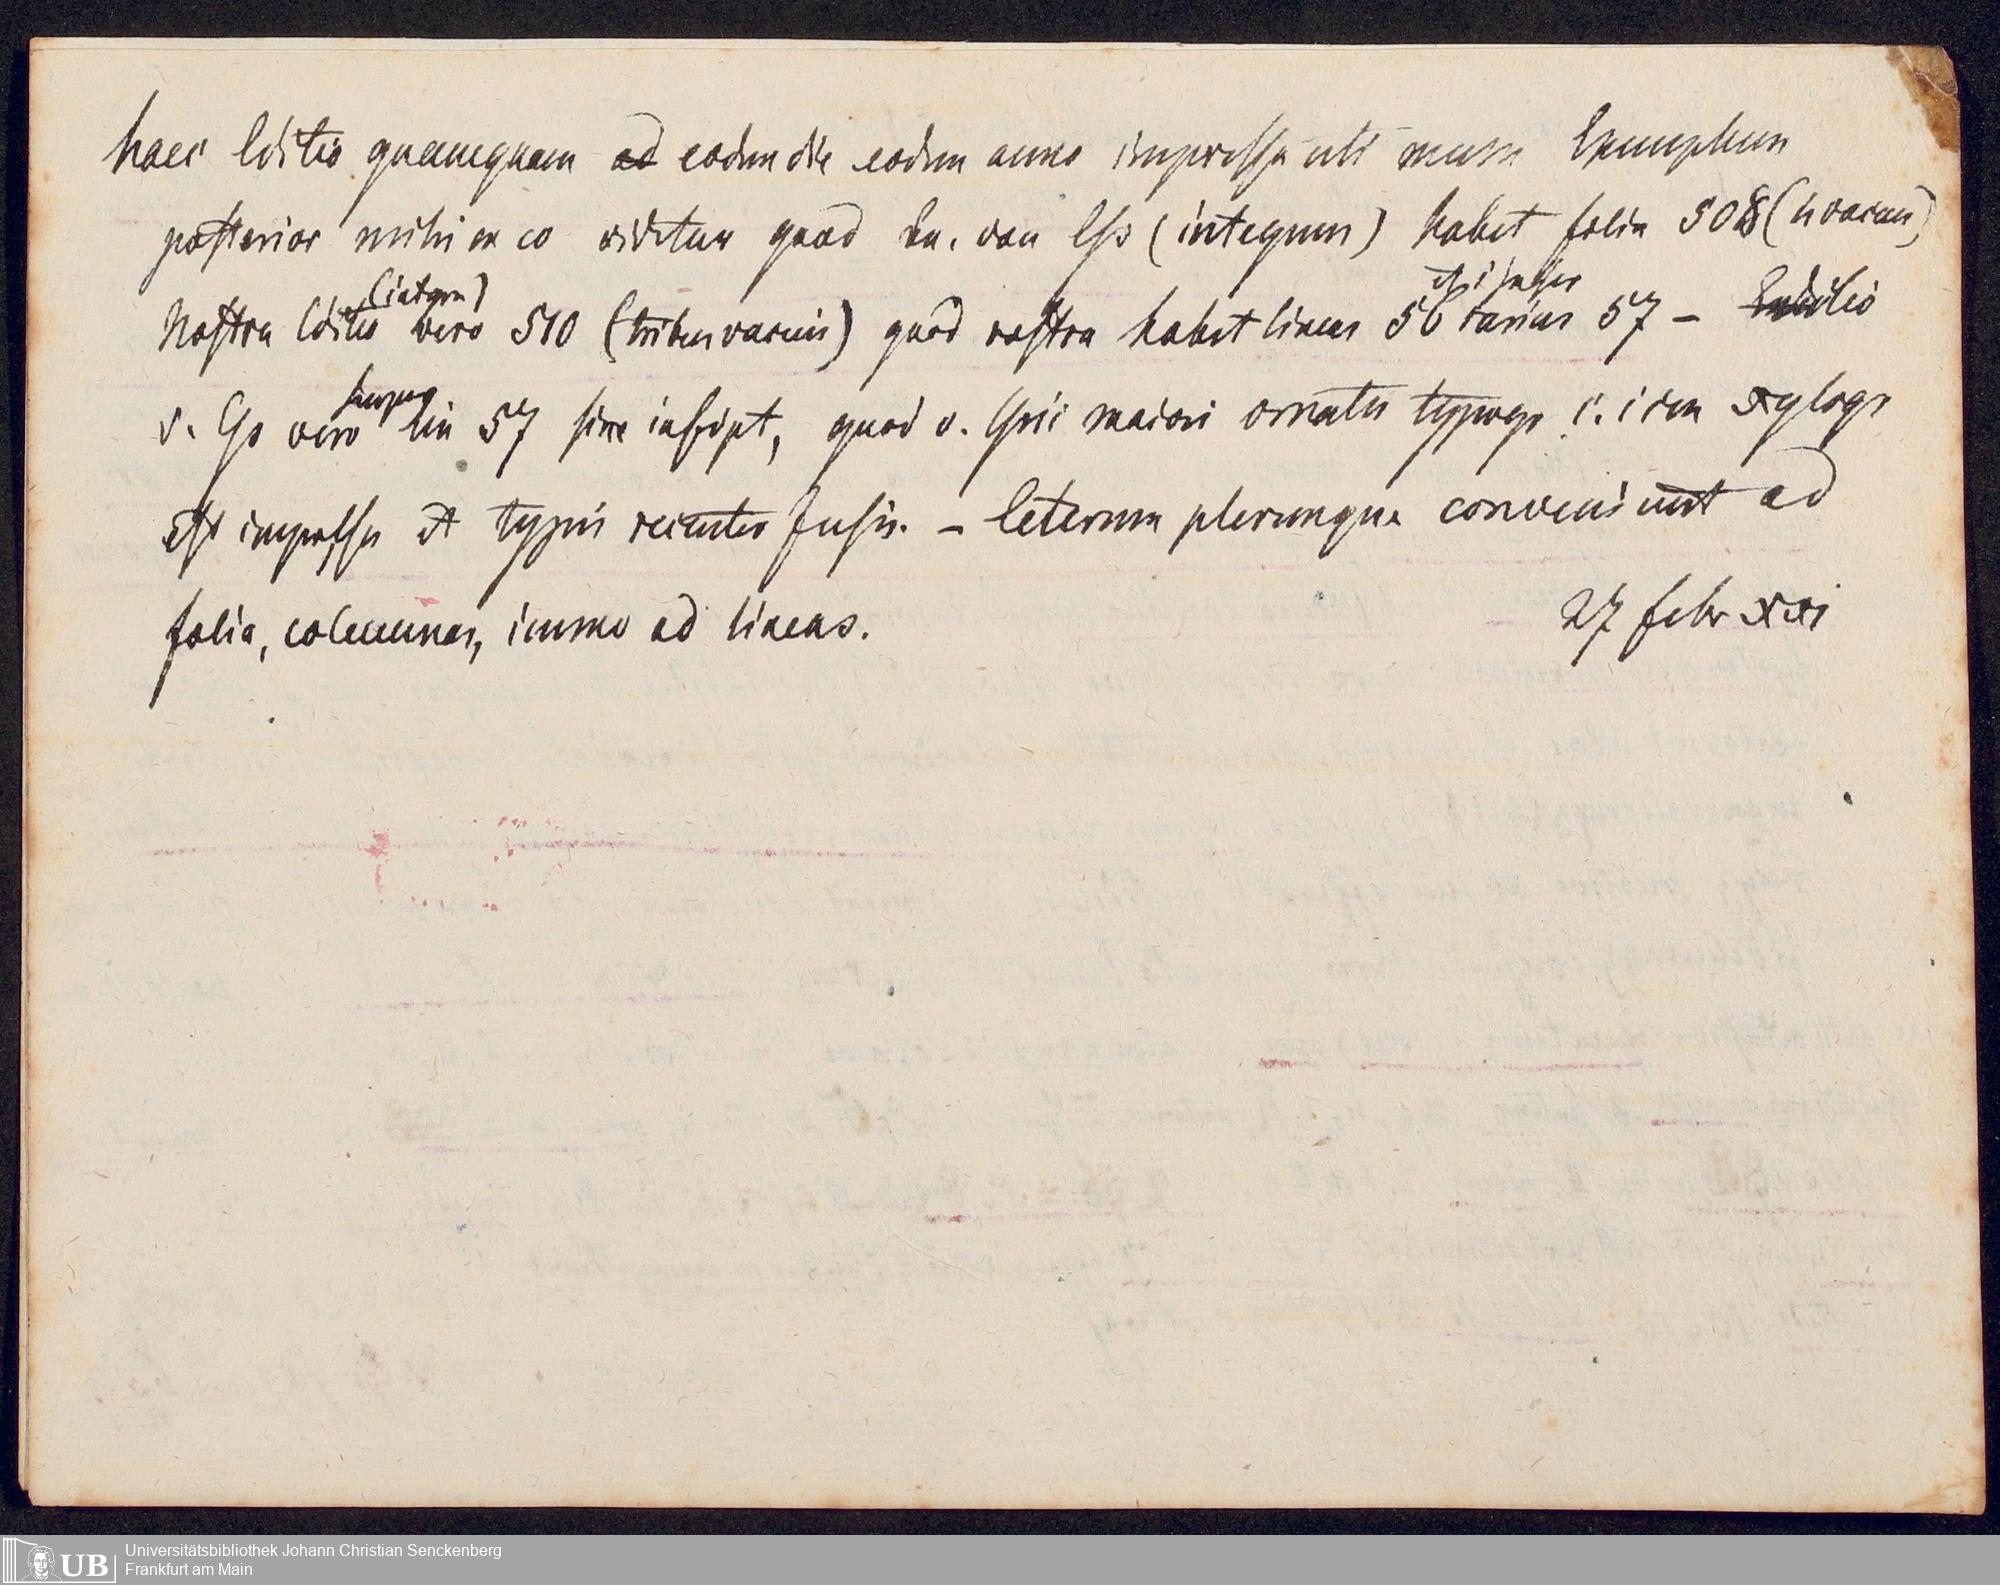 haec Editio quamquam ad eodem die eodem anno impressa uti meum Exemplum
posterior mihi ex eo videtur quod Ex. van Ess (integrum) habet folia 508 (vacuis)
Nostra Editio (integra) vero 510 (tribus vacuis) quod nostra habet lineas 56 et rarius 57 – Editio
v. Es vero semper lin 57 sine inscript, quod v. Essii maiori ornatu typogr i. xylogr
est impressa et typis recenter fusis. – Ceterum plerumque conveniunt ad
folia, columnas, immo ad lineas.
27 febr xxi
UB
Universitätsbibliothek Johann Christian Senckenberg
Frankfurt am Main